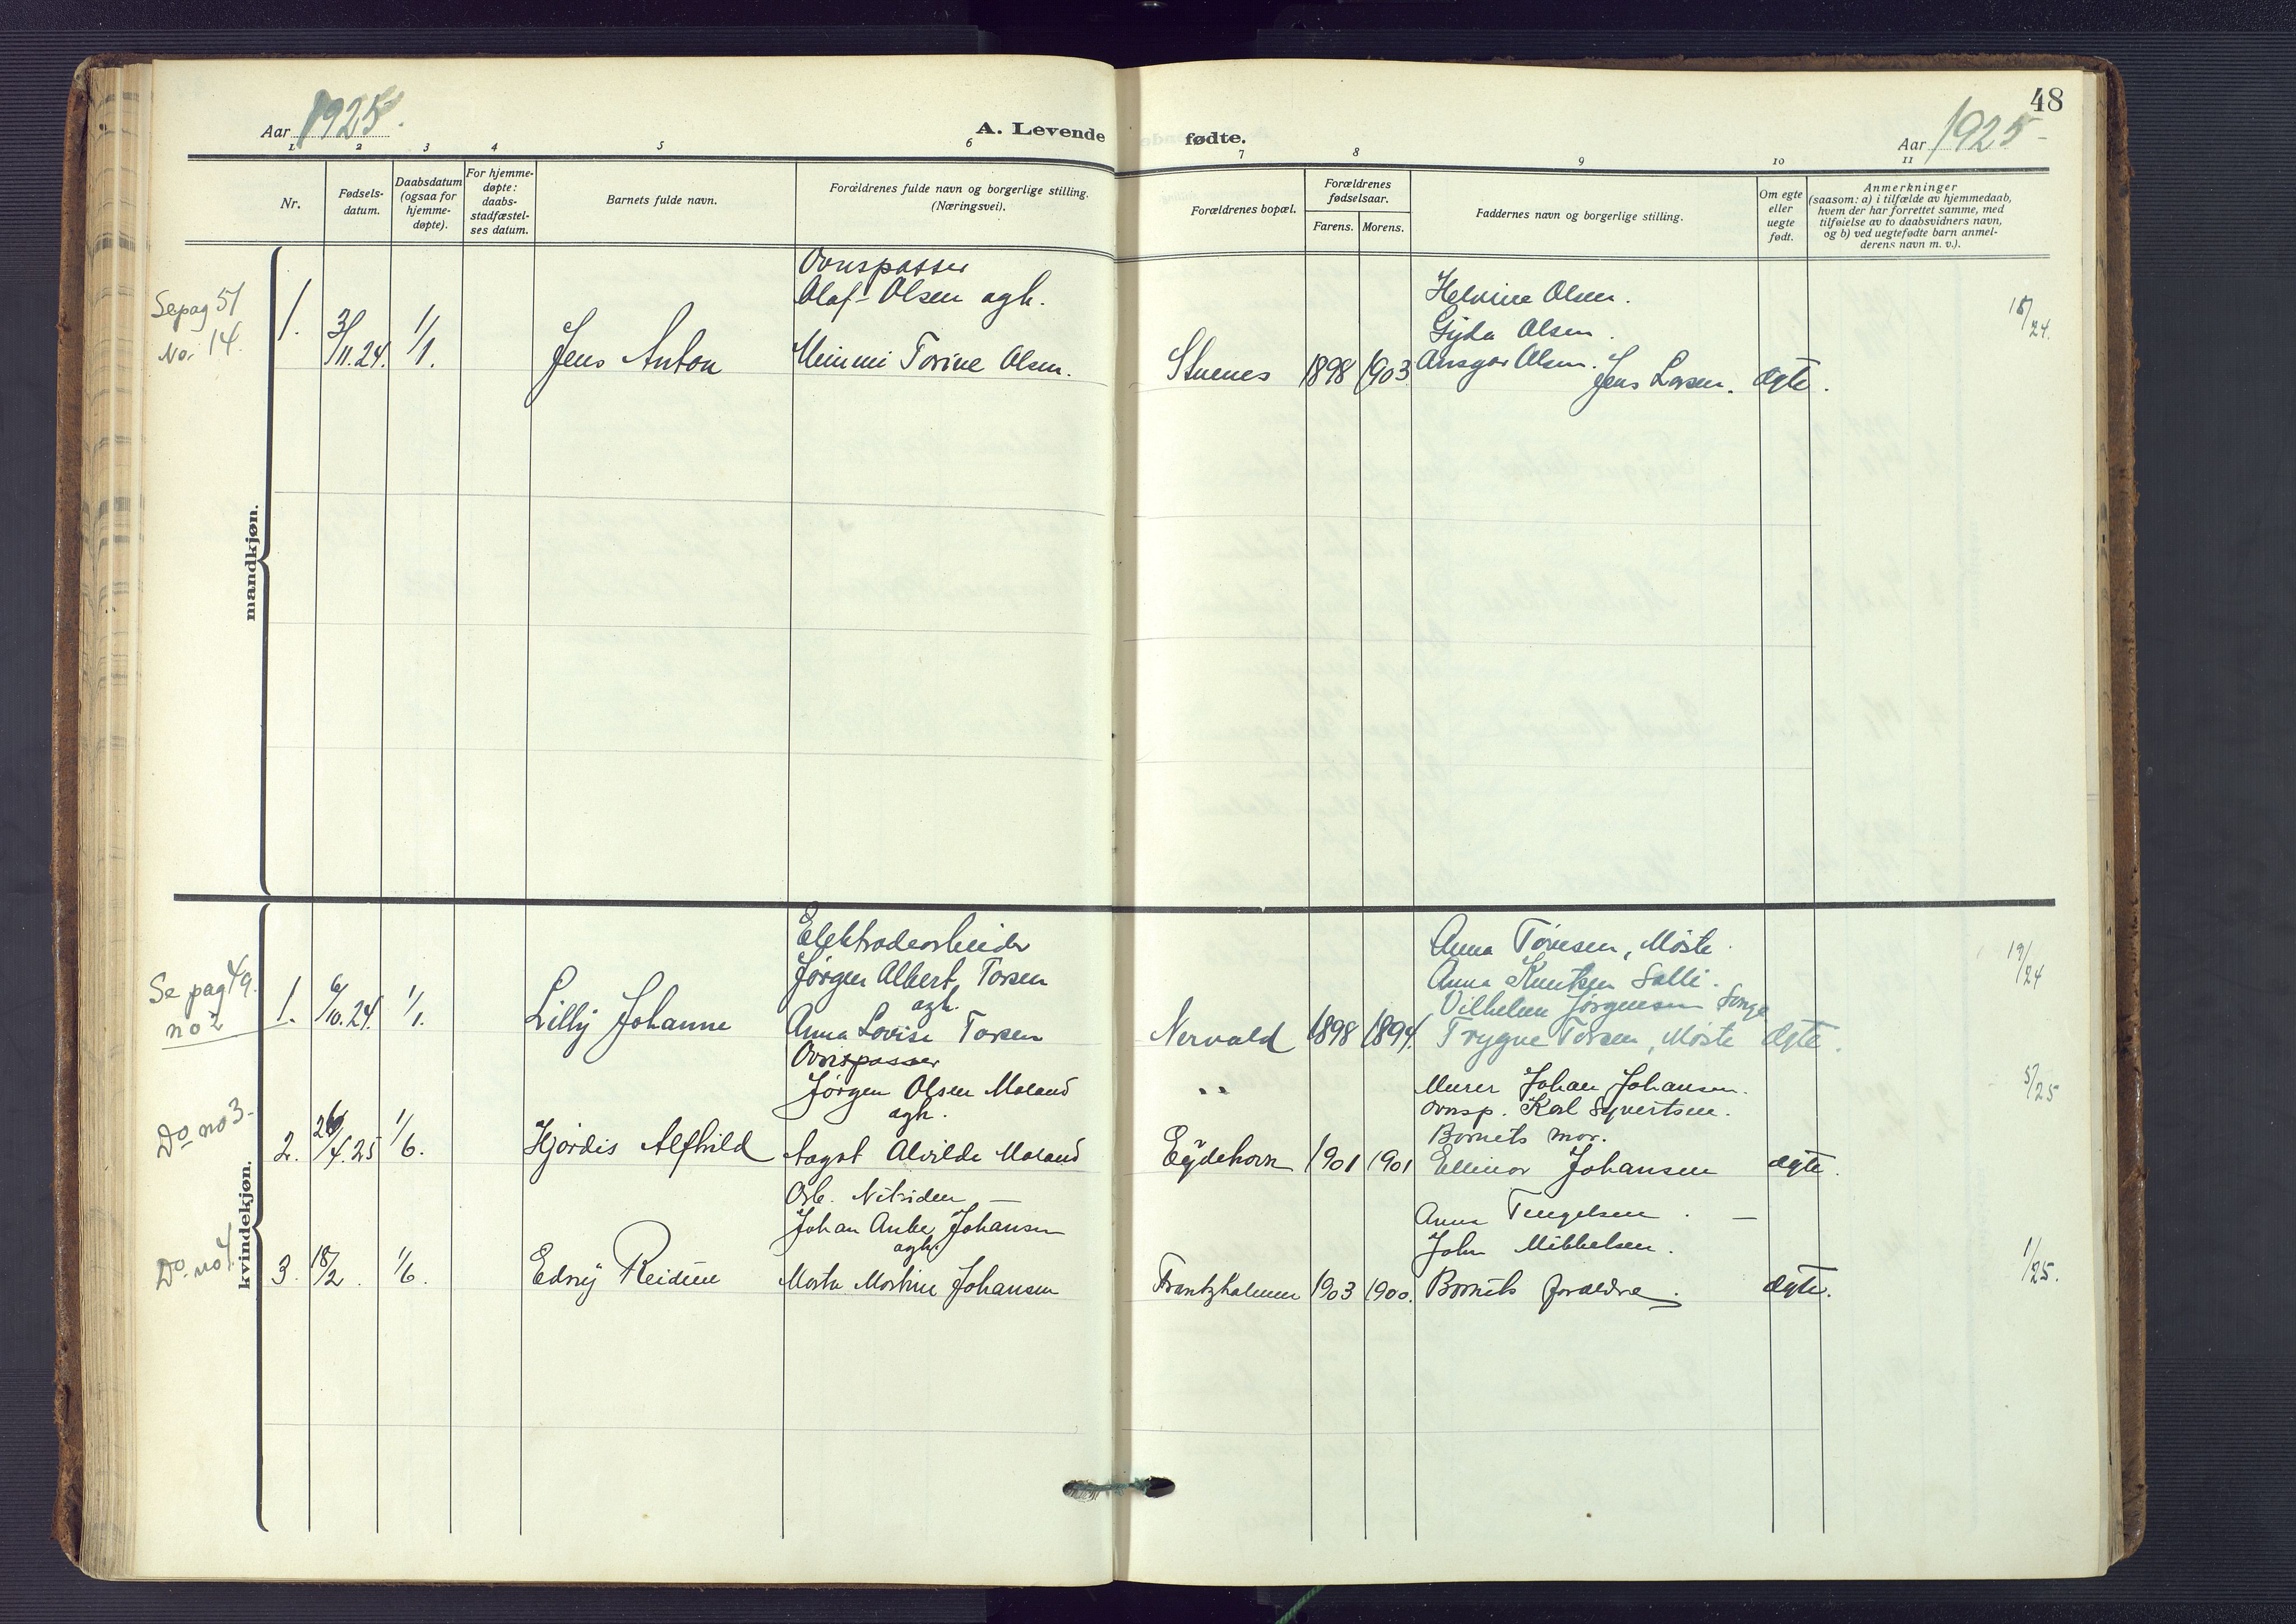 48
Aar 1925.
A. Levende fødte.
Aar 1925
1 2 3 4 5 6 7 8 9 10 11
Nr.
Fødsels-
datum.
Daabsdatum
(ogsaa for
hjemme-
døpte).
For hjemme-
døpte:
daabs-
stadfæstel-
ses datum.
Barnets fulde navn.
Forældrenes fulde navn og borgerlige stilling.
(Næringsvei).
Forældrenes bopæl.
Forældrenes
fødselsaar.
Farens. Morens.
Faddernes navn og borgerlige stilling.
Om egte
eller
uegte
født.
Anmerkninger
(saasom: a) i tilfælde av hjemmedaab,
hvem der har forrettet samme, med
tilføielse av to daabsvidners navn,
og b) ved uegtefødte barn anmel-
derens navn m. v.).
mandkjøn.
Se pag 51
No. 14.
1. 3/11.24. 1/1. Jens Anton
Ovnspasser
Olaf Olsen agh.
Mimmi Torine Olsen.
Stuenes 1898 1903
Helvine Olsen.
Gyda Olsen.
Ansgar Olsen.
Jens Larsen. Ægte.
15/24.
kvindekjøn.
Se pag 49.
no 2
1. 6/10.24. 1/1. Lilly Johanne
Elektrodearbeider
Jørgen Albert Torsen
agh.
Anna Lovise Torsen
Nervold 1898 1894.
Anna Torsen, Møste.
Anna Knutsen Salli.
Vilhelm Jørgensen Songe
Trygve Torsen, Møste Ægte.
19/24
Do no 3.
2. 26/4.25 1/6. Hjørdis Alfhild
Ovnspasser
Jørgen Olsen Moland
agh.
Aagot Alvilde Moland
Eydehavn 1901 1901
Murer Johan Johansen.
Ovnsp. Karl Syvertsen.
Barnets mor.
Ellinor Johansen ægte.
5/25
Do no 4.
3. 18/2. 1/6. Edny Reidun
Arb. Nitriden —
Johan Johansen
agh.
Marta Martine Johansen
Frantzholmen 1903 1900.
Anna Tengelsen. —
John Mikkelsen.
Barnets forældre. ægte.
1/25.